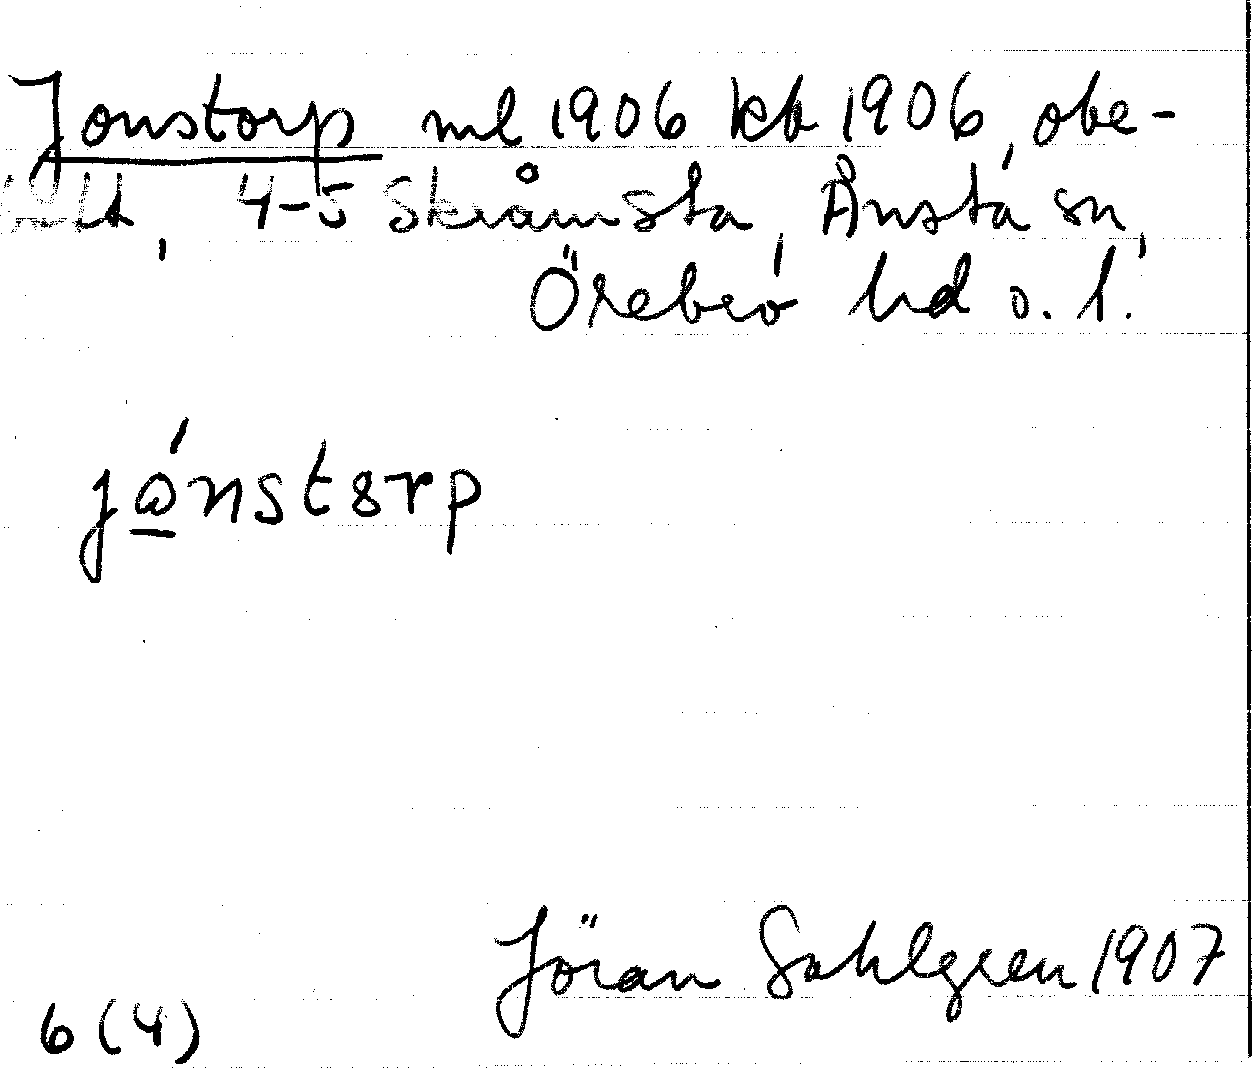 Jonstorp ml 1906 kb 1906, obe-
, 4-5 Skråmsta, Ånsta sn,
Örebro hd o. l.
jónstsrp
Jöran Sahlgren 1907
6 (4)